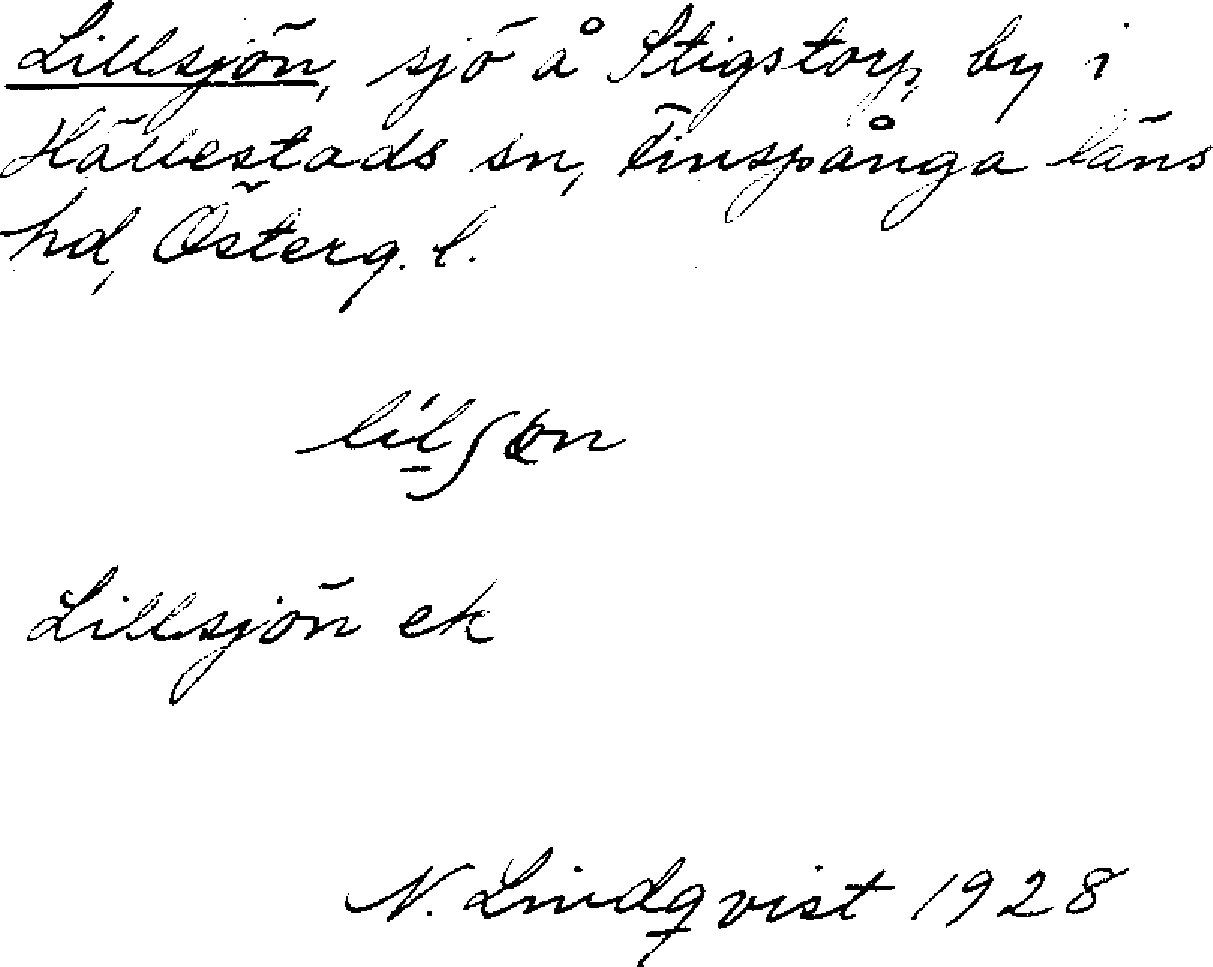 Lillsjön, sjö å Stigstorp, by i
Hällestads sn, Finspånga läns
hd, Österg. l.
Lillsjön ek
N. Lindqvist 1928